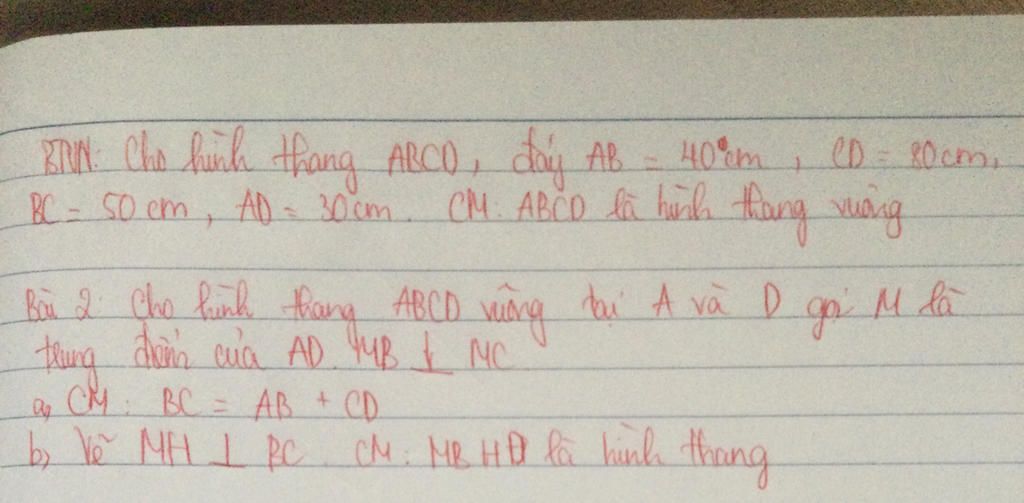 BTVN: Cho hình thang ABCD, đáy AB = 40cm, CD = 80cm,
BC = 50cm, AD = 30cm. CM: ABCD là hình thang vuông
Bài 2: Cho hình thang ABCD vuông tại A và D gọi M là
trung điểm của AD. MB ⊥ MC
a, CM: BC = AB + CD
b, Vẽ MH ⊥ BC. CM: MBHD là hình thang